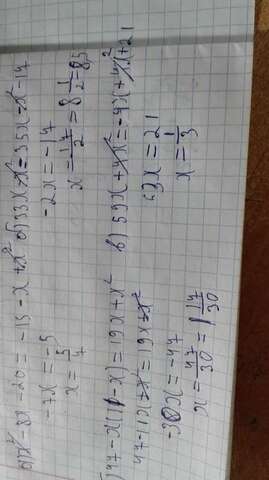 а) x² - 8x - 20 = -15 - x + x²
-7x = -5
x = 5/4
б) 33x - x² = 35x - x² - 14
-2x = -14
x = 17/2 = 8 1/2 = 8,5
) 47 - x(11 - x) = 19x + x²
47 - 11x + x² = 19x + x²
-30x = -47
x = 47/30 = 1 17/30
в) 59x + 4x² = -4x + 4x² + 21
63x = 21
x = 1/3